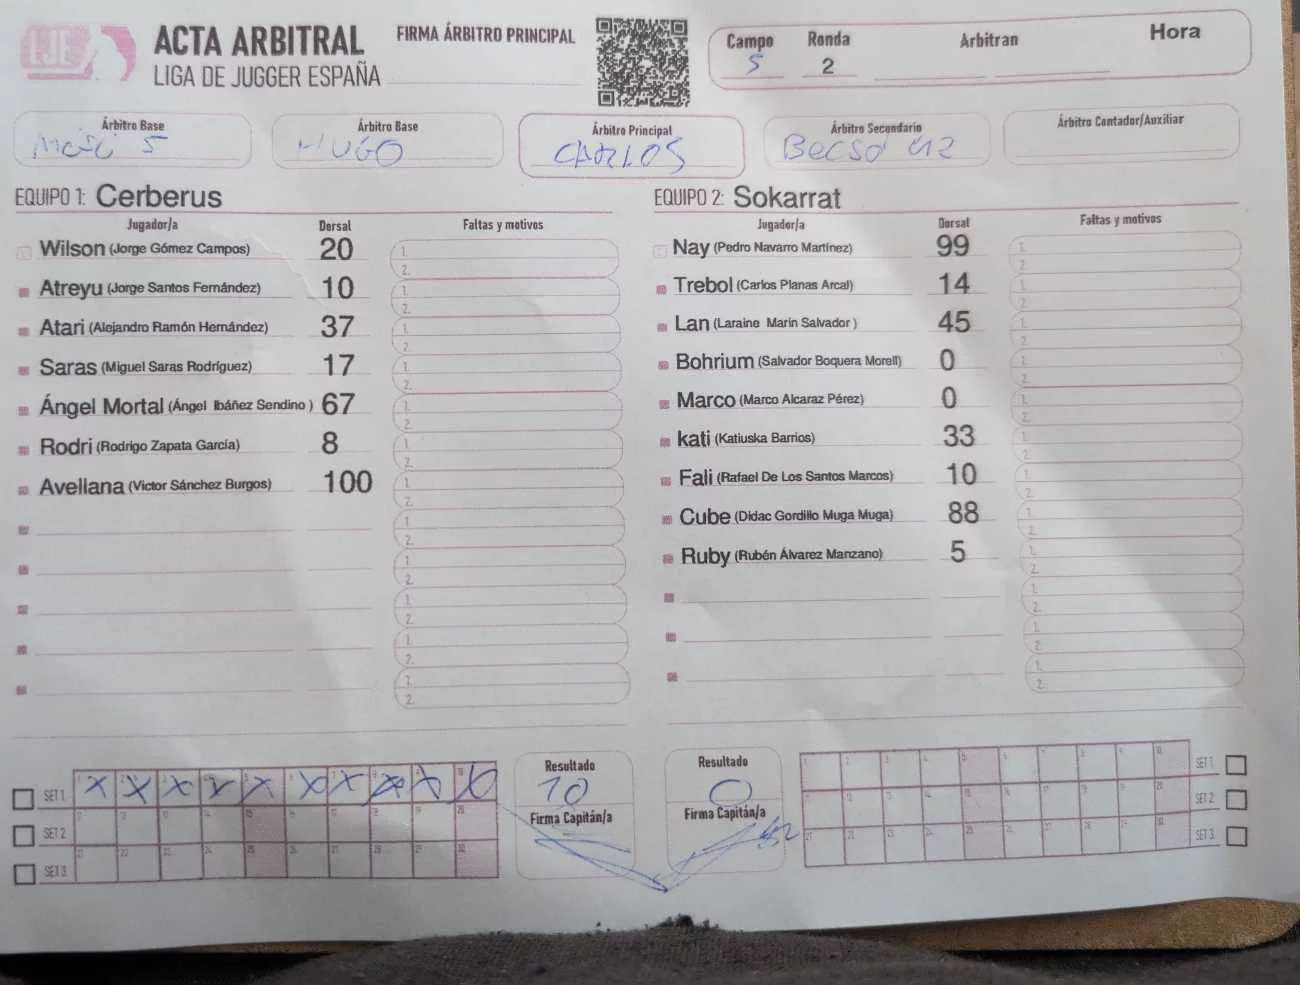 LJE
ACTA ARBITRAL
LIGA DE JUGGER ESPAÑA
FIRMA ÁRBITRO PRINCIPAL
Campo Ronda Arbitran Hora
5 2
Árbitro Base Árbitro Base Árbitro Principal Árbitro Secundario Árbitro Contador/Auxiliar
HUGO CARLOS
EQUIPO 1: Cerberus
Jugador/a Dorsal Faltas y motivos
Wilson (Jorge Gómez Campos) 20 1. 2.
Atreyu (Jorge Santos Fernández) 10 1. 2.
Atari (Alejandro Ramón Hernández) 37 1. 2.
Saras (Miguel Saras Rodríguez) 17 1. 2.
Ángel Mortal (Ángel Ibáñez Sendino ) 67 1. 2.
Rodri (Rodrigo Zapata García) 8 1. 2.
Avellana (Victor Sánchez Burgos) 100 1. 2.
1. 2.
1. 2.
1. 2.
1. 2.
1. 2.
EQUIPO 2: Sokarrat
Jugador/a Dorsal Faltas y motivos
Nay (Pedro Navarro Martínez) 99 1. 2.
Trebol (Carlos Planas Arcal) 14 1. 2.
Lan (Laraine Marin Salvador ) 45 1. 2.
Bohrium (Salvador Boquera Morell) 0 1. 2.
Marco (Marco Alcaraz Pérez) 0 1. 2.
kati (Katiuska Barrios) 33 1. 2.
Fali (Rafael De Los Santos Marcos) 10 1. 2.
Cube (Didac Gordillo Muga Muga) 88 1. 2.
Ruby (Rubén Álvarez Manzano) 5 1. 2.
1. 2.
1. 2.
1. 2.
SET 1 X X X X X X X X X X
SET 2
SET 3
Resultado
10
Firma Capitán/a
Resultado
0
Firma Capitán/a
SET 1
SET 2
SET 3